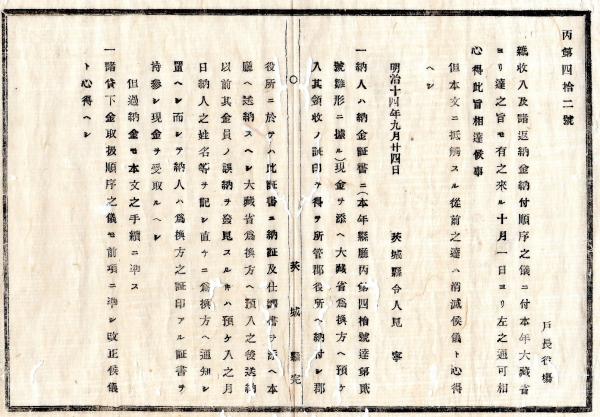 丙第四拾二號
戸長役塲
總收入及諸返納金納付順序之儀ニ付本年大藏省
ヨリ達之旨モ有之來ル十月一日ヨリ左之通可相
心得此旨相達候事
但本文ニ抵觸スル從前之達ハ消滅候儀ト心得
ヘシ
明治十四年九月廿四日　茨城縣令人見寧
一納人ハ納金証書ニ(本年縣廳丙第四拾號達第貳
號雛形ニ據ル)現金ヲ添ヘ大藏省爲換方ヘ預ケ
入其領收ノ証印ヲ得ヲ所管郡役所ヘ納付シ郡
茨城縣完
役所ニ於テハ此証書ニ納証及仕譯書ヲ添ヘ本
廳ヘ送納スヘシ大藏省爲換方ヘ預入之後送納
以前其金員ノ誤納ヲ發見スルキハ預ケ入之月
日納人之姓名等ヲ記シ直ケニ爲換方ヘ通知シ
置ヘシ而シテ納人ハ爲換方之証印アル証書ヲ
持參シ現金ヲ受取ルヘシ
但過納金モ本文之手續ニ準ス
一諸貸下金取扱順序之儀モ前項ニ準シ改正候儀
ト心得ヘシ